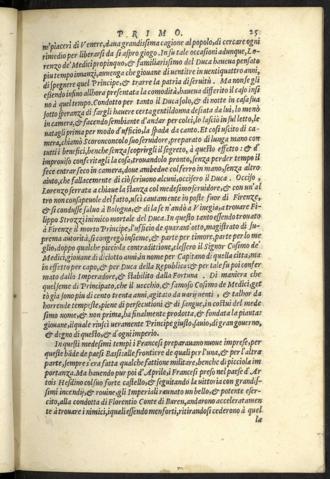 PRIMO. 25
m'piaceri di Venere, dana grandissima cagione al popolo, di cercare ogni
rimedio per liberarsi da sì aspro giogo. In su tale occasioni adunque, Lo-
renzo de' Medici propinquo, & familiarissimo del Duca haueua pensato
piu tempo innanzi, auuenga che giouane di uentitre in uentiquattro anni,
di spegnere quel Principe, & trarre la patria di seruitù. Ma non se gli
essendo insino allhora presentata la commodità, haueua differito il caso insi
no à quel tempo. Condotto per tanto il Duca solo, & di notte in casa sua
sotto speranza di fargli hauere certa gentildonna desiata da lui, lo menò
in camera, & facendo sembiante d'andar per colei, lo lasciò in sul letto, le
uatagli prima per modo d'ufficio, la spada da canto. Et così uscito di ca-
mera, chiamò Scoronconcolo suo seruidore, preparato di luoga mano con
tutti i benefici, benche senza scoprirgli il segreto, à questo effetto: & d'
improuiso conferitagli la cosa, trouandolo pronto, senza perder tempo il
fece entrar seco in camera, doue ambedue col ferro in mano, senza altro
aiuto, che falsamente di ciò scriuono alcuni, occisero il Duca. Occiso,
Lorenzo serrata à chiaue la stanza col medesimo seruidore, & con un'al
tro non consapeuole del fatto, uscì cautamente in poste fuor di Firenze,
& si condusse saluo à Bologna, & di là n'andò à Vinegia, a trouare Fi-
lippo Strozzi inimico mortale del Duca. In questo tanto essendo trouato
à Firenze il morto Principe, l'ufficio de quarant'otto, magistrato di su-
prema autorità, si congregò insieme, & parte per timore, parte per lo me
glio, doppo qualche piccola contradittione, elessero il Signor Cosimo de'
Medici, giouane di diciotto anni, in nome per Capitano di quella città, ma
in effetto per capo, & per Duca della Republica, & per tale fu poi confer-
mato dall'Imperadore, & stabilito dalla Fortuna. Di maniera che
quel seme di Principato, che il uecchio, & famoso Cosimo de Medici get
tò già sono piu di cento trenta anni, agitato da uari uenti, & talhor da
horrende tempeste, piene di persecutioni, & di sangue, in costui del mede
simo nome, & non prima, ha finalmente prodotta, & fondata la pianta:
giouane, il quale riuscì ueramente Principe giusto, sauio, di gran gouerno,
& degno di questo, & d'ogni imperio.
In questi medesimi tempi i Francesi preparauano nuoue imprese, per
queste både de paesi Bassi: alle frontiere de quali per l'una, & per l'altra
parte, sempre s'era fatta qualche fattione militare, benche di piccola im
portanza. Ma hauendo pur poi d'Aprile i Francesi preso nel paese d'Ar
tois Hesdino col suo forte castello, & seguitando la uittoria con grandis-
simi incendi, & rouine: gli Imperiali raunato un bello, & potente eser-
cito, alla condotta di Florentio Conte di Buren, andarono acceleratamen
te à trouare i nimici, i quali essendo men forti, ritirandosi cederono à quel
la